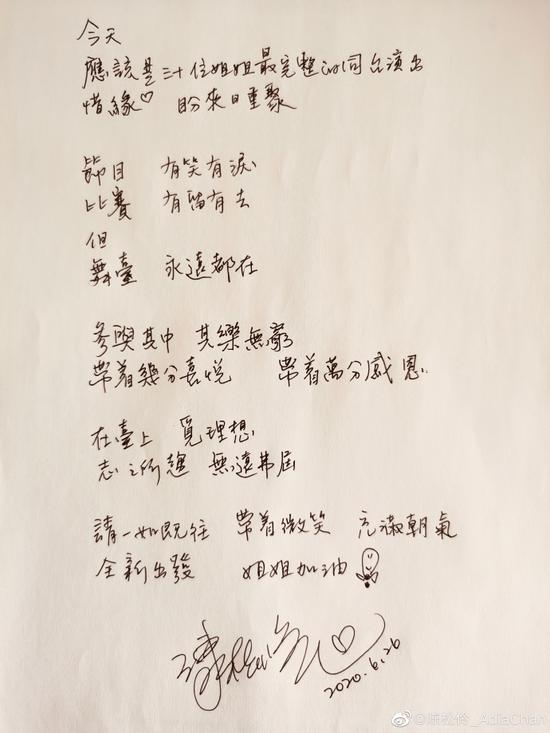 今天
應該是三十位姐姐最完整的同台演出
惜緣♡ 盼來日重聚
節目 有笑有淚
比賽 有留有去
但
舞臺 永遠都在
參與其中 其樂無窮
帶着幾分喜悦 帶着萬分感恩
在臺上 覓理想
志之所趨 無遠弗屆
請一如既往 帶着微笑 充滿朝氣
全新出發 姐姐加油
2020.6.26
@陈松伶_AdiaChan